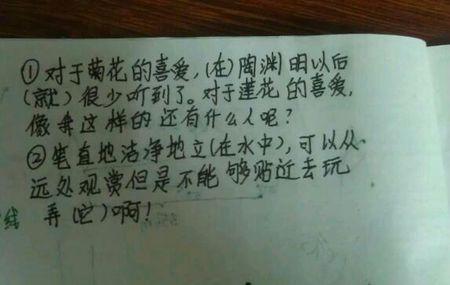 ①对于菊花的喜爱,(在)陶渊明以后
(就)很少听到了。对于莲花的喜爱,
像我这样的还有什么人呢?
②笔直地洁净地立(在水中),可以从
远处观赏但是不能够贴近去玩
弄(它)啊!
线